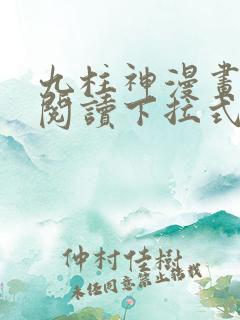 九柱神漫畫
閱讀下拉式
仲村佳樹
未經同意禁止轉載